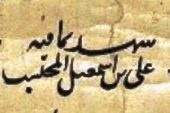 شهد بما فيه
علی بن اسمعیل المحتسب